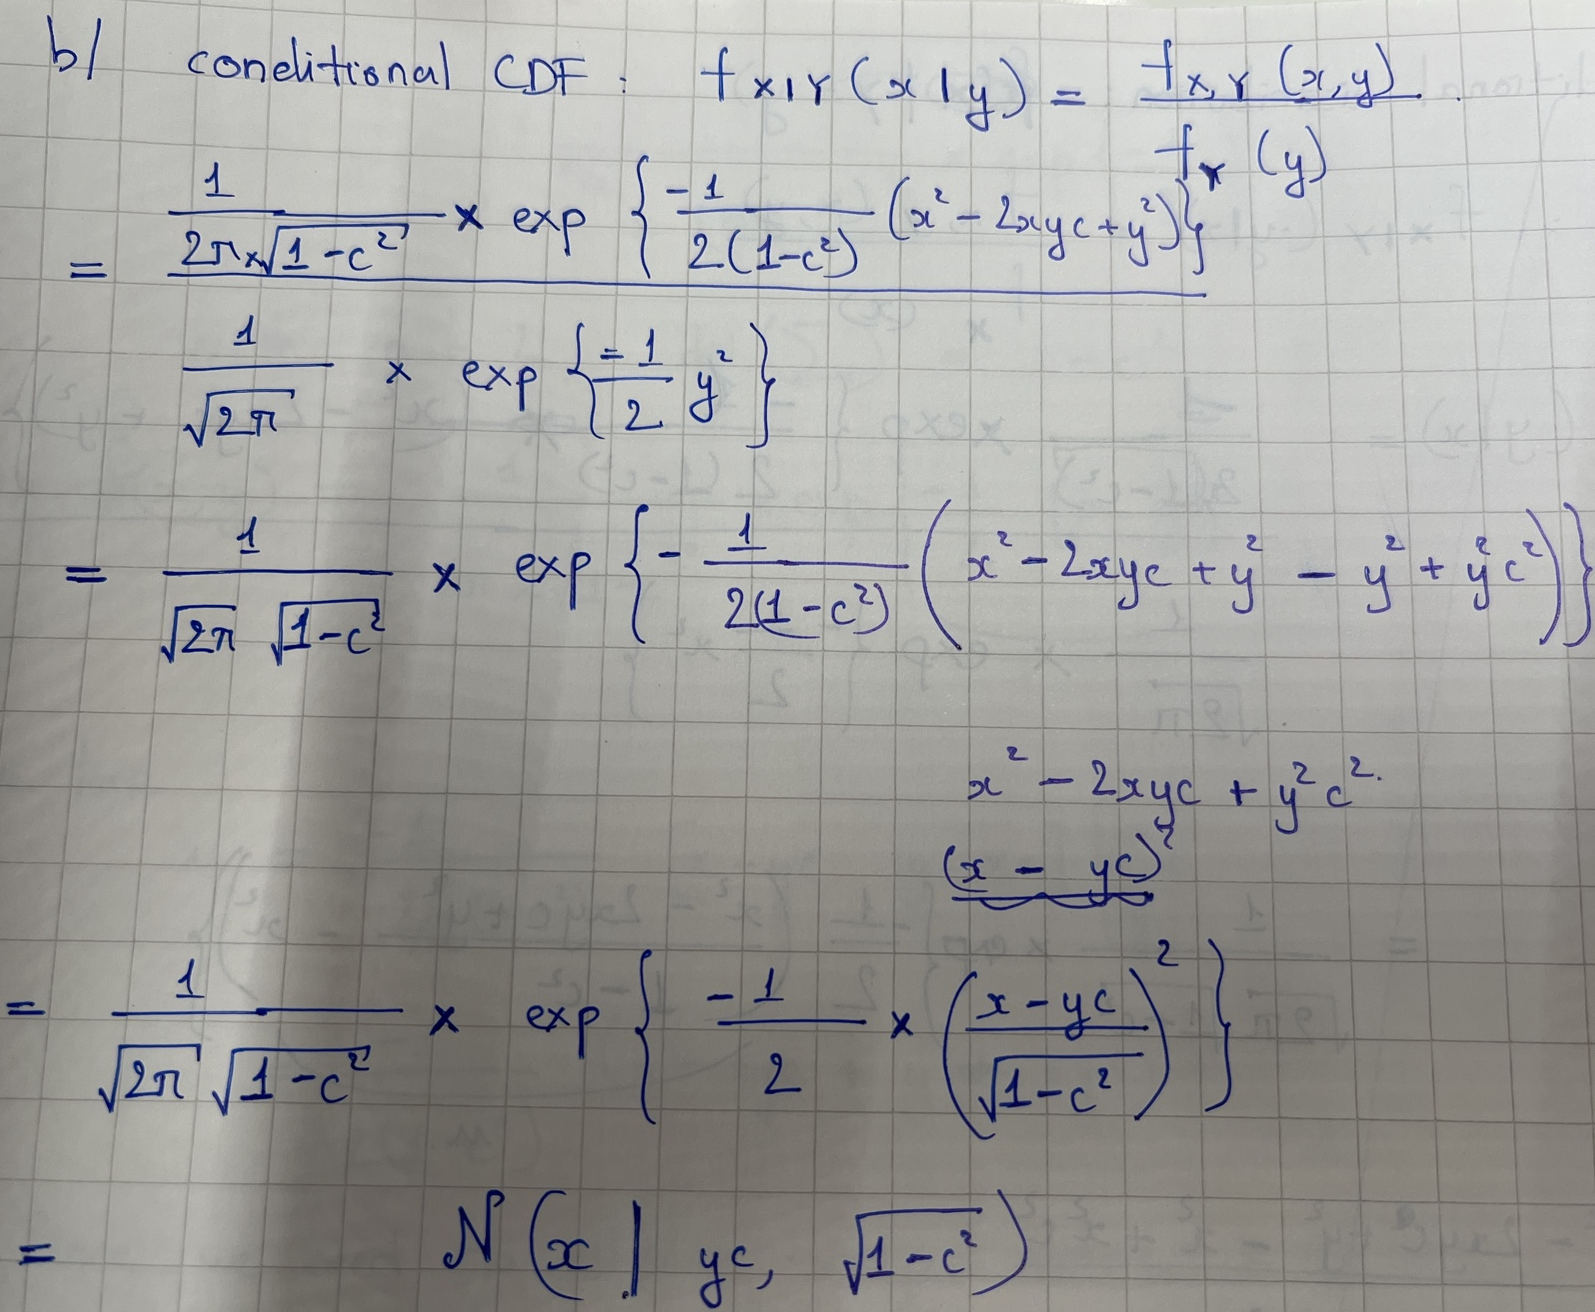 b/ conditional CDF : f_{X|Y} (x | y) = \frac{f_{X,Y} (x,y)}{f_Y (y)}.
= \frac{\frac{1}{2π × \sqrt{1-c^2}} × exp \{ \frac{-1}{2(1-c^2)} (x^2 - 2xyc + y^2) \}}{\frac{1}{\sqrt{2π}} × exp \{ \frac{-1}{2} y^2 \}}
= \frac{1}{\sqrt{2π} \sqrt{1-c^2}} × exp \{ - \frac{1}{2(1-c^2)} ( x^2 - 2xyc + y^2 - y^2 + y^2 c^2 ) \}
x^2 - 2xyc + y^2 c^2.
(x - yc)^2
= \frac{1}{\sqrt{2π} \sqrt{1-c^2}} × exp \{ \frac{-1}{2} × ( \frac{x-yc}{\sqrt{1-c^2}} )^2 \}
= N ( x | yc, \sqrt{1-c^2} )